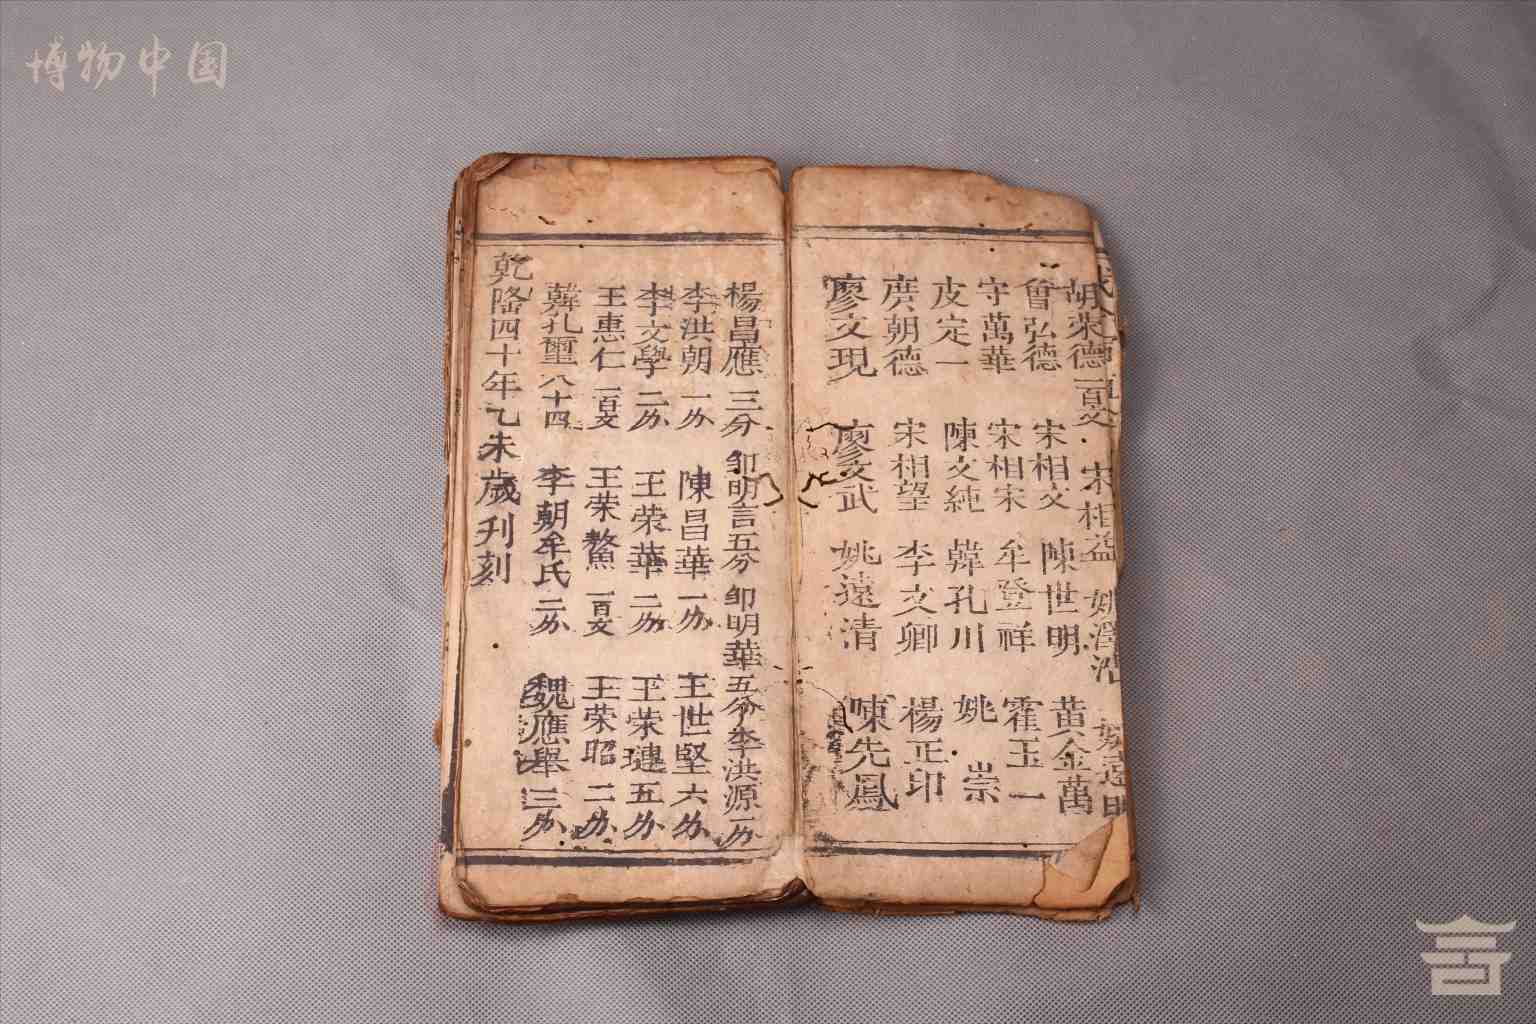 博物中国
胡荣德 一百文 宋相益 姚澤浩 姚遠明
曾弘德 宋相文 陳世明 黄金萬
守萬華 宋相宋 牟登祥 霍玉一
皮定一 陳文純 韓孔川 姚崇
庹朝德 宋相望 李文卿 楊正印
廖文現 廖文武 姚遠清 陳先鳳
楊昌應 三分 邹明言 五分 邹明華 五分 李洪源 一分
李洪朝 一分 陳昌華 一分 王世堅 六分
李文學 二分 王荣華 二分 王荣璉 五分
王惠仁 一百文 王荣鰲 一百文 王荣昭 二分
韓孔璽 八十四 李朝牟氏 二分 魏應舉 三分
乾隆四十年乙未歲刋刻